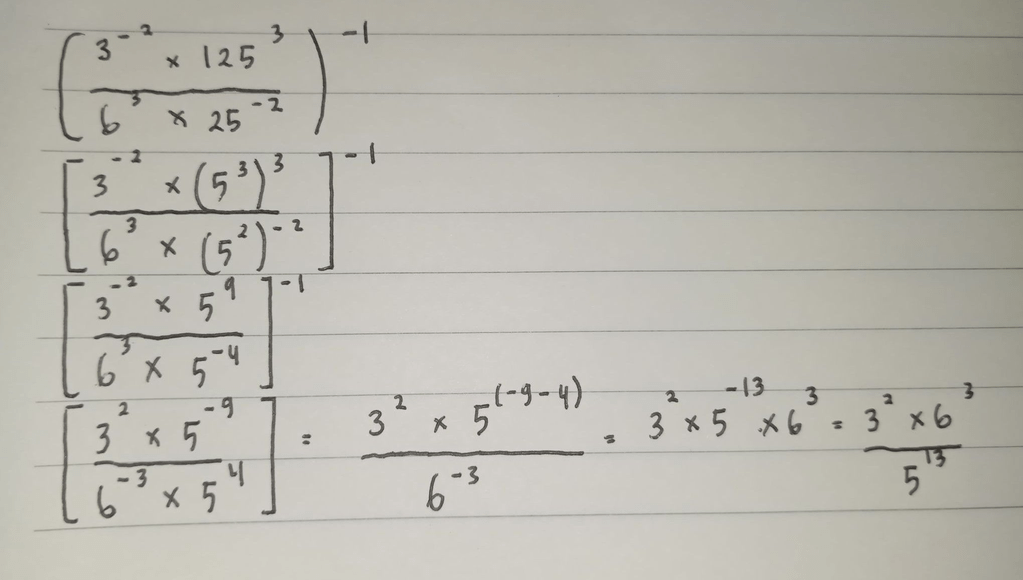 (3⁻² × 125³ / 6³ × 25⁻²)⁻¹
[3⁻² × (5³)³ / 6³ × (5²)⁻²]⁻¹
[3⁻² × 5⁹ / 6³ × 5⁻⁴]⁻¹
[3² × 5⁻⁹ / 6⁻³ × 5⁴] = 3² × 5⁽⁻⁹⁻⁴⁾ / 6⁻³ = 3² × 5⁻¹³ × 6³ = 3² × 6³ / 5¹³